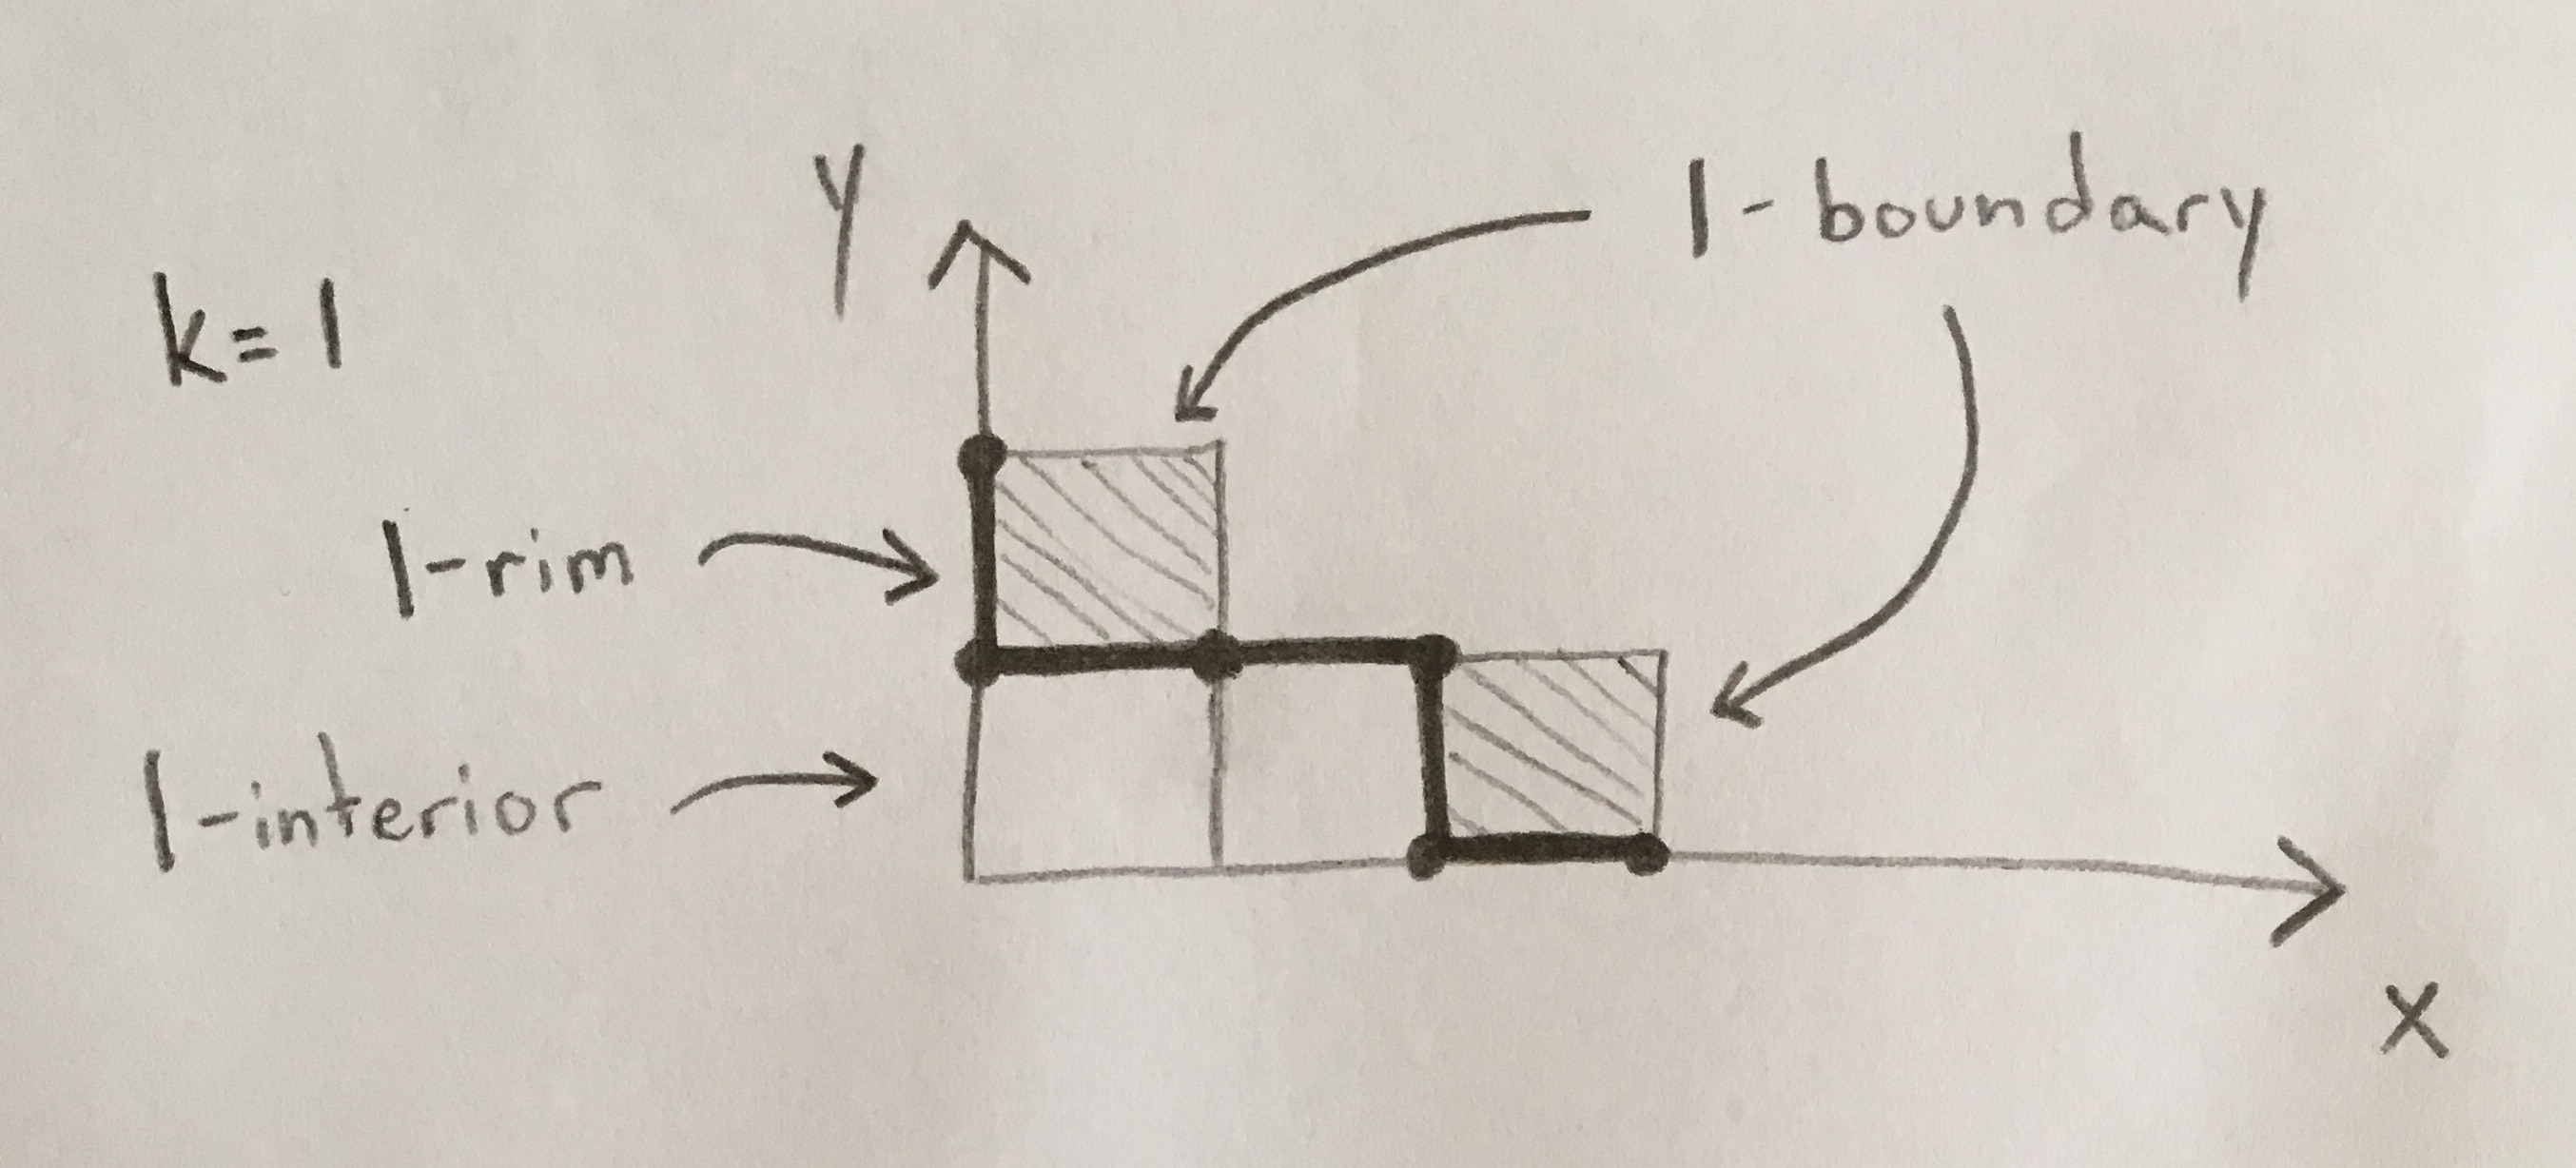 y
1-boundary
k=1
1-rim
1-interior
x